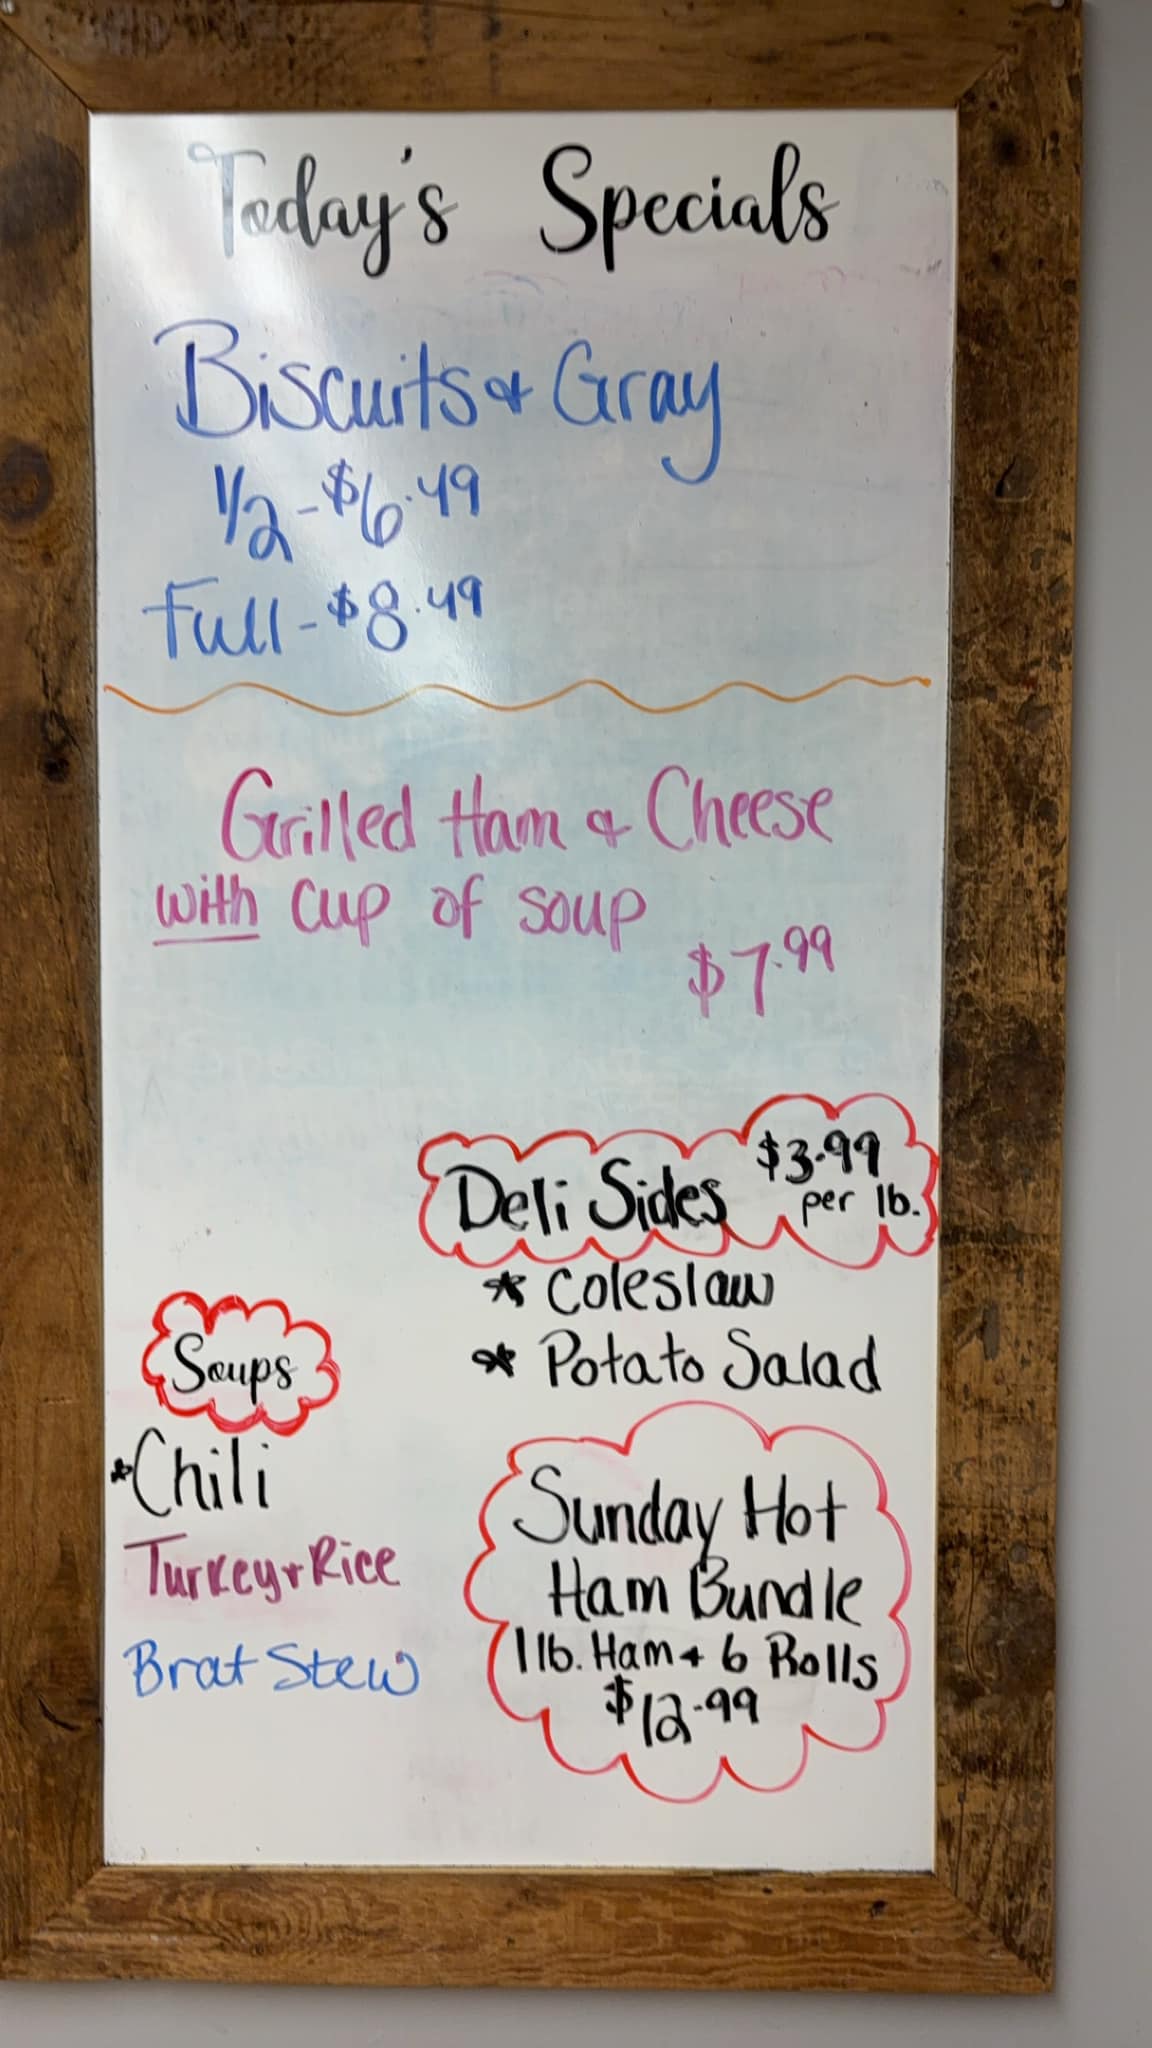 Today's Specials
Biscuits & Gray
1/2 - $6.49
Full - $8.49
Grilled Ham & Cheese
with cup of soup
$7.99
Deli Sides $3.99
per lb.
* Coleslaw
* Potato Salad
Soups
*Chili
Turkey + Rice
Brat Stew
Sunday Hot
Ham Bundle
1 lb. Ham + 6 Rolls
$12.99